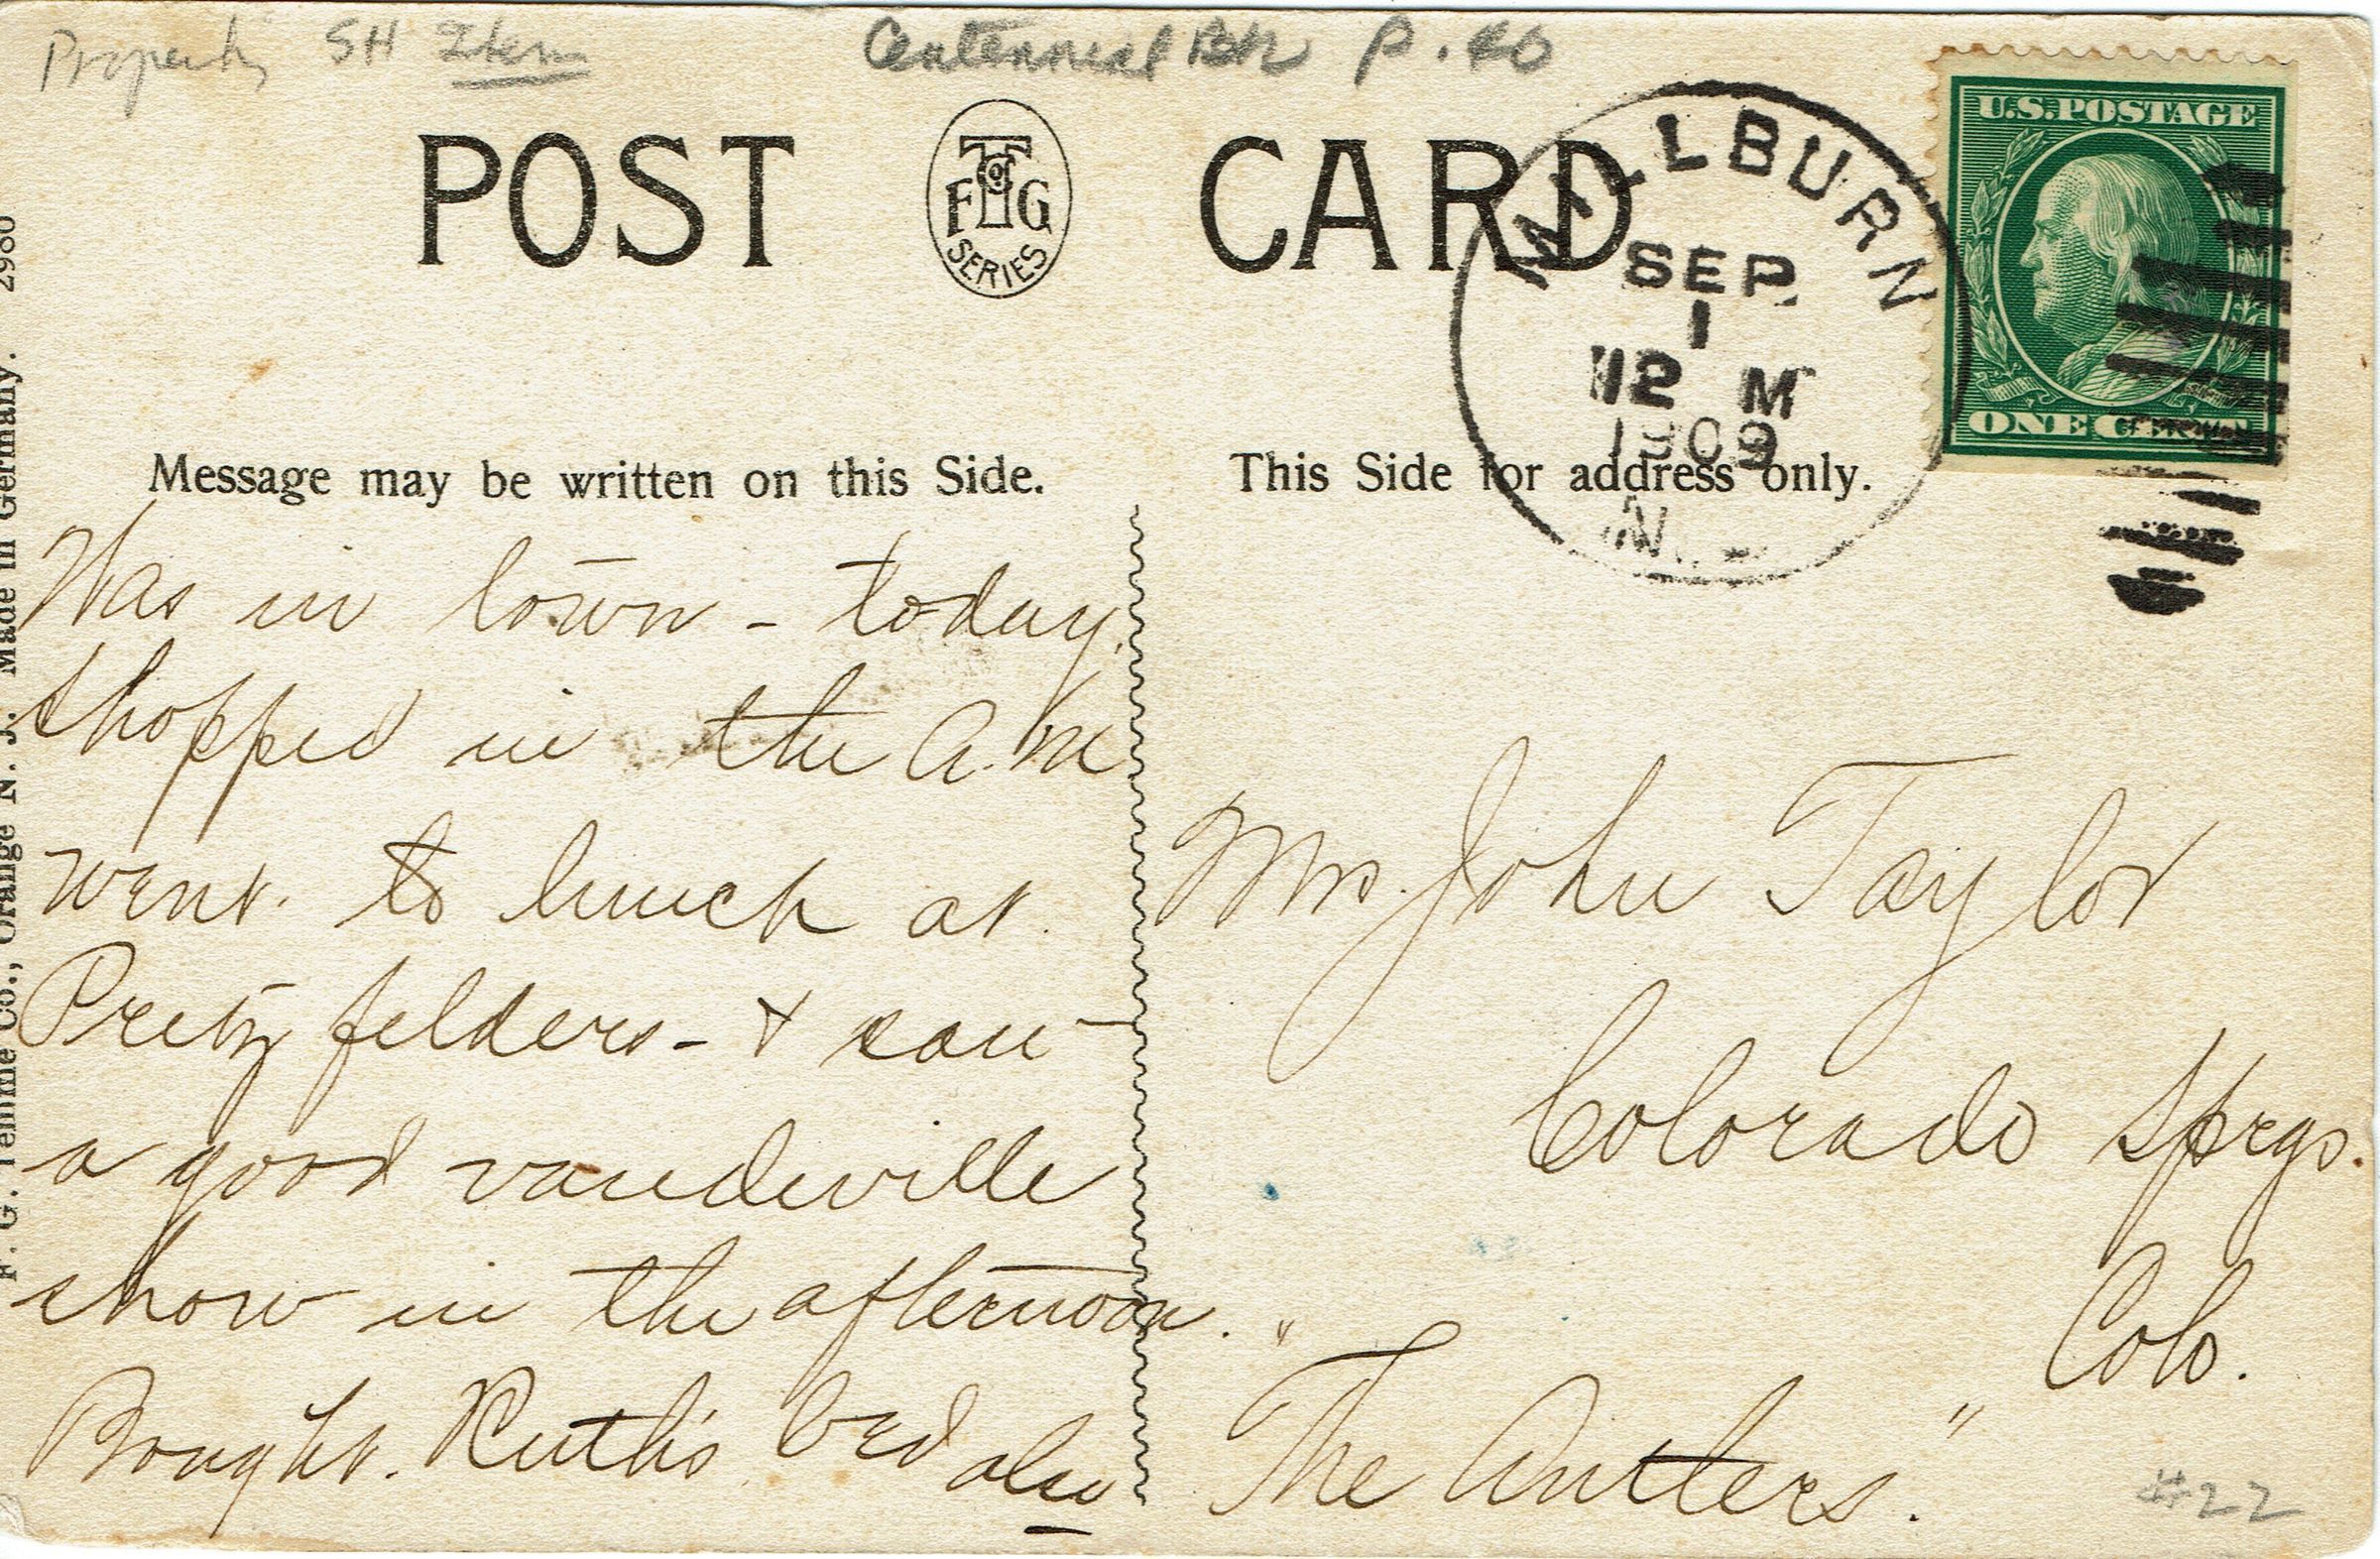 Property SH Item
Centennial Bk p. 40
POST CARD
F T Co G
SERIES
MILLBURN
SEP
1
12 M
1909
N.
U.S. POSTAGE
ONE CENT
Message may be written on this Side.
This Side for address only.
Was in town - today.
shopped in the A.M
went. to lunch at.
Pretzfelders - & saw
a good vaudeville
show in the afternoon.
Bought. Ruth's bed also
Mrs. John Taylor
Colorado Sprgs.
Colo.
"The Antlers."
#22
F. G. Temme Co., Orange N. J. Made in Germany. 2980